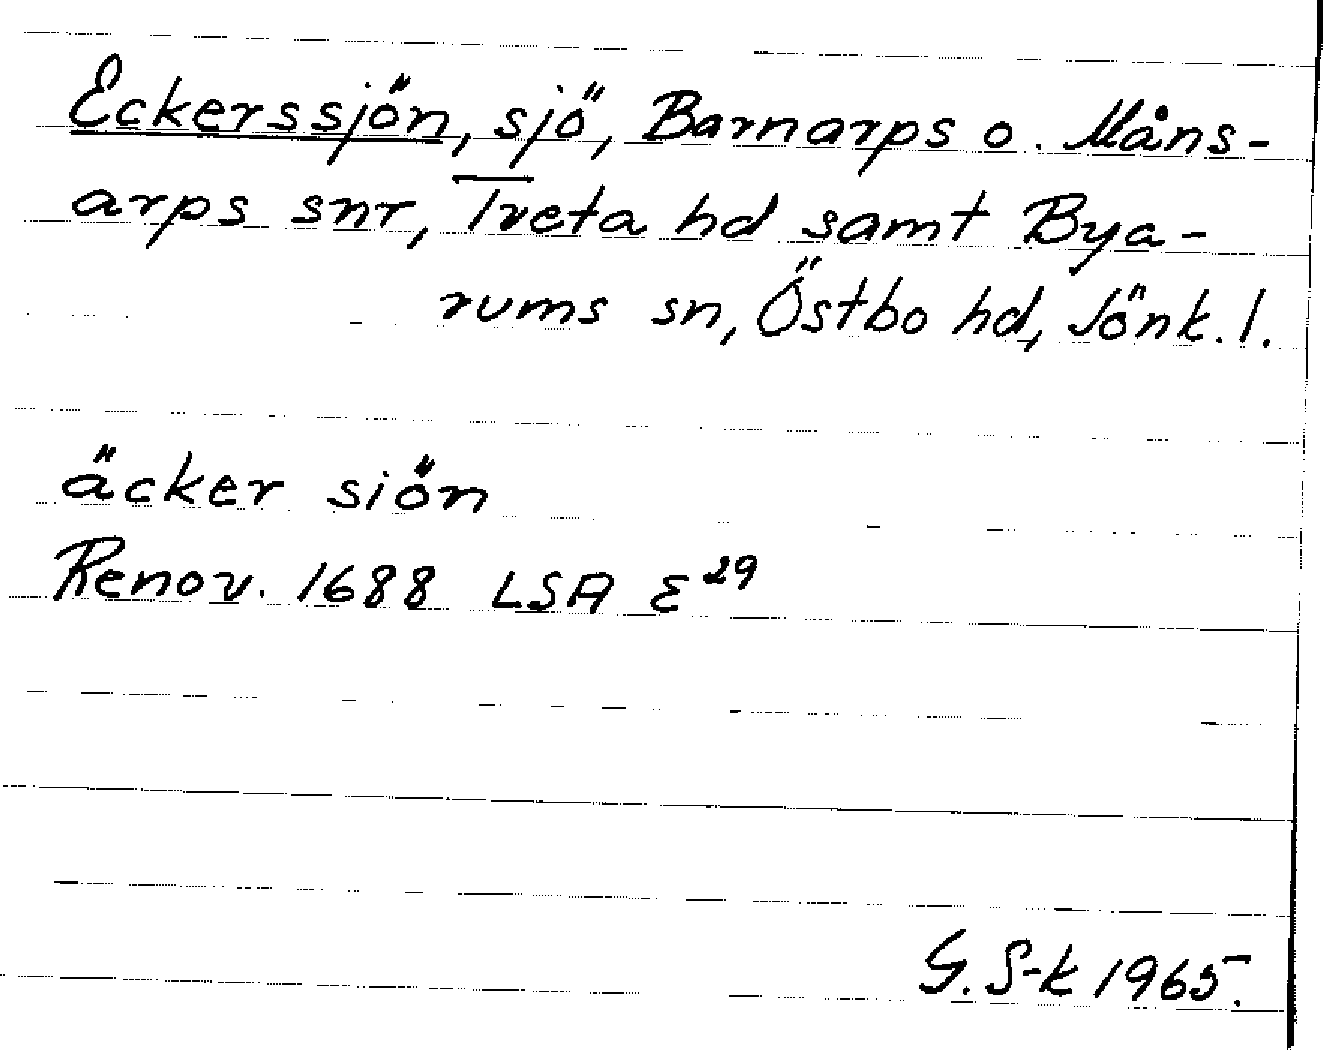 Eckerssjön, sjö, Barnarps o. Måns-
arps snr, Tveta hd samt Bya-
rums sn, Östbo hd, Jönk. l.
äcker siön
Renov. 1688 LSA E²⁹
G. S-k 1965.